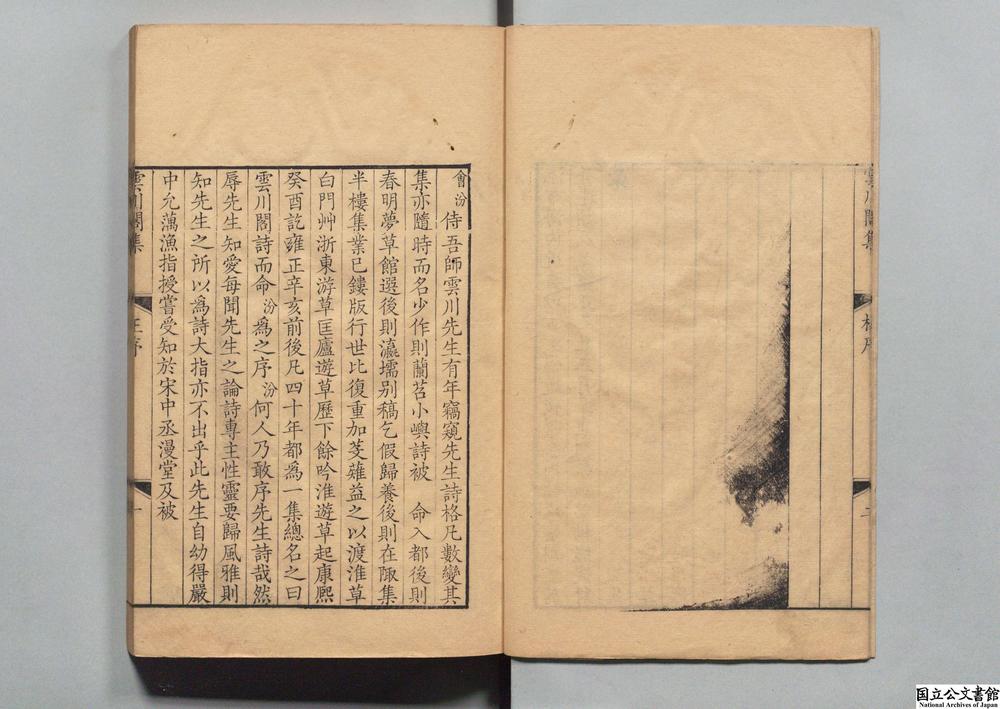 雲川閣集
杜序
二
會汾侍吾師雲川先生有年竊窺先生詩格凡數變其
集亦隨時而名少作則蘭苕小嶼詩被　命入都後則
春明夢草館選後則瀛壖别稿乞假歸養後則在陬集
半樓集業已鏤版行世比復重加芟薙益之以渡淮草
白門艸浙東游草匡廬遊草歷下餘吟淮遊草起康熙
癸酉訖雍正辛亥前後凡四十年都爲一集總名之曰
雲川閣詩而命汾爲之序汾何人乃敢序先生詩哉然
辱先生知愛每聞先生之論詩專主性靈要歸風雅則
知先生之所以爲詩大指亦不出乎此先生自幼得嚴
中允藕漁指授嘗受知於宋中丞漫堂及被
雲川閣集
王序
一
国立公文書館
National Archives of Japan